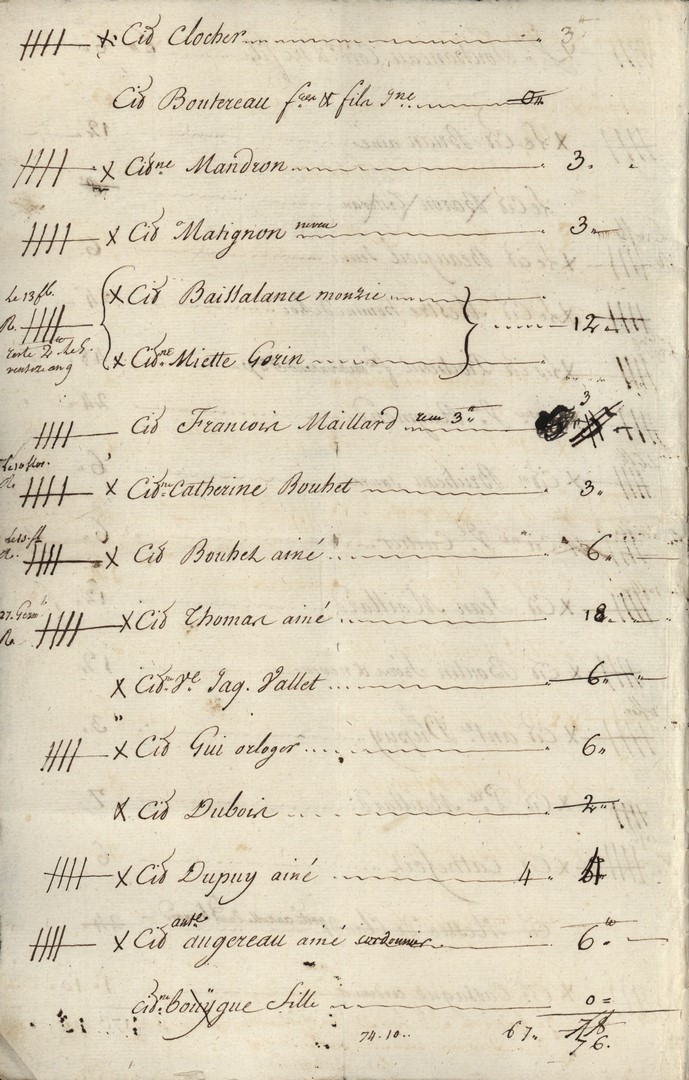 x Cid Clocher 3"
Cid Boutereau fres & fils gne 0"
x Cidne Mandron 3"
x Cid Matignon neveu 3"
Le 13 fl.
x Cid Baissalance monzie
R. 12"
reste 2"
x Cidne Miette Gorin
Cid Francois Maillard reçu 3" 3
Le 10 flor.
R. x Cidne Catherine Bouhet 3"
R. x Cid Bouhet ainé 6"
27. Germ.
R. x Cid Thomas ainé 18"
x Cidne Ve Jaq. Vallet 6"
x Cid Gui orloger 6"
x Cid Dubois 2"
x Cid Dupuy ainé 4
x Cid ante augereau ainé cordonnier 6"
Cidne bouÿgue fille 0=
74.10.. 67" 78
76.